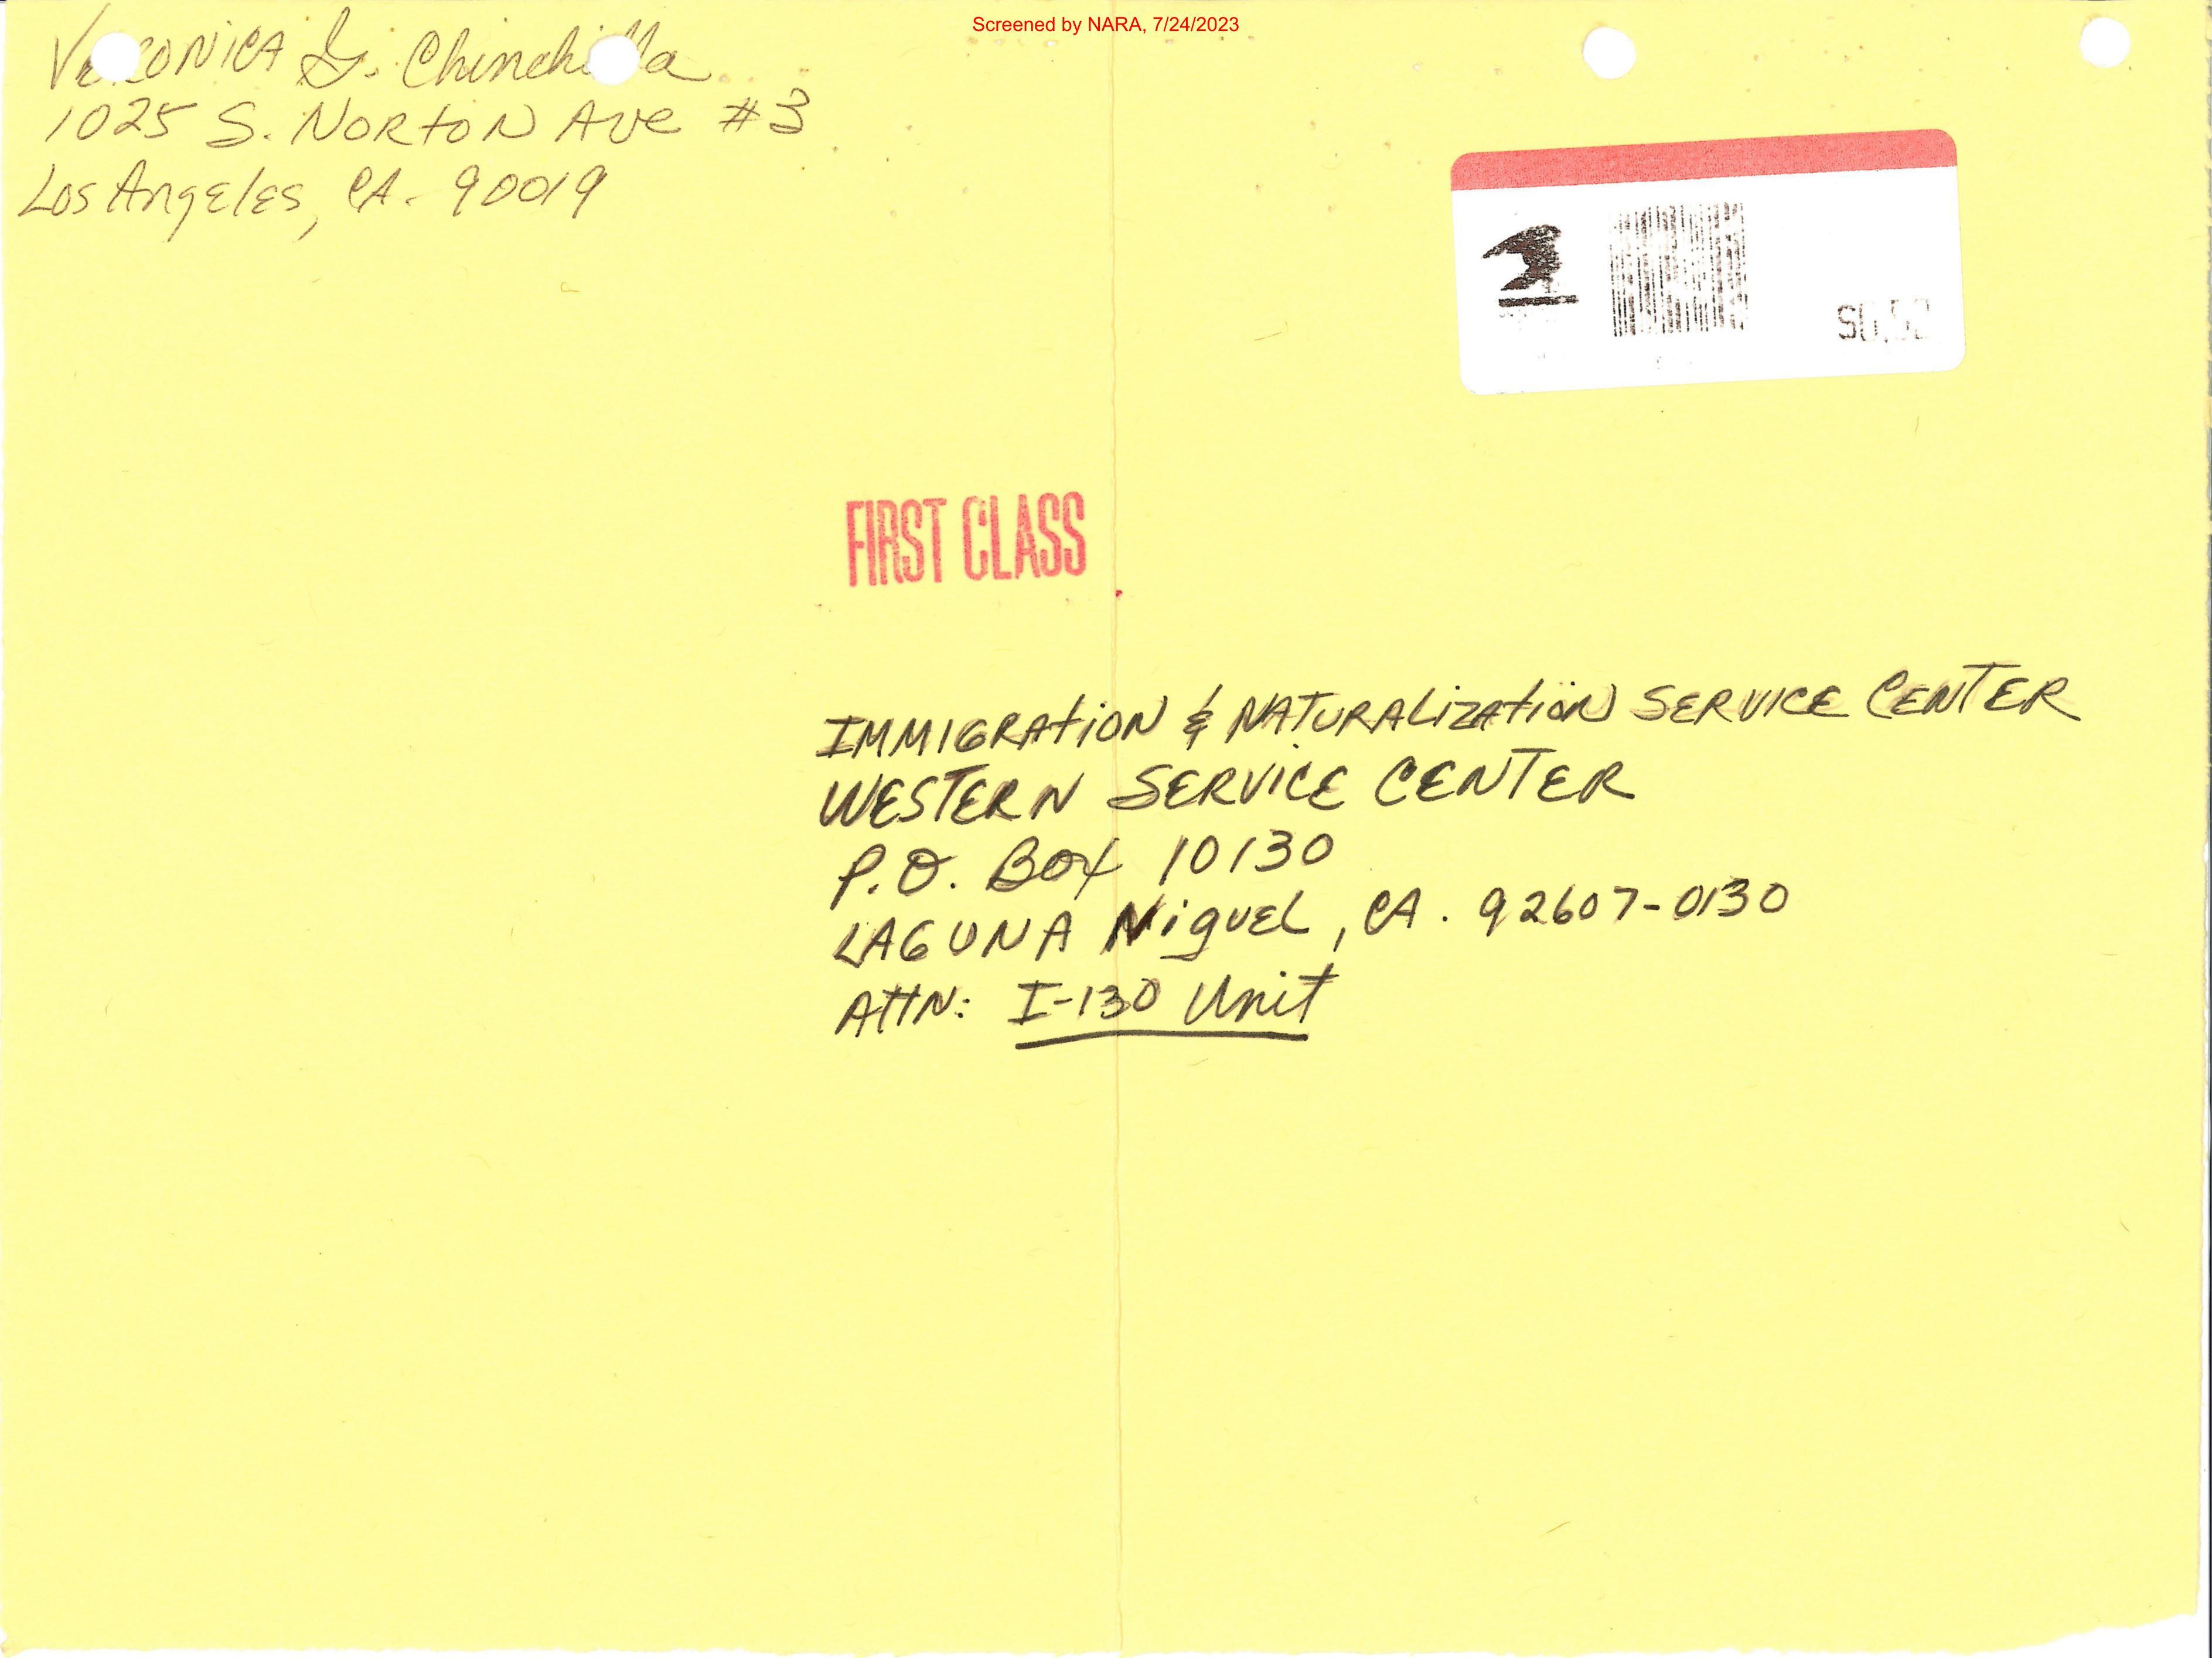 Screened by NARA, 7/24/2023
VERONICA G. Chinchilla
1025 S. NORTON Ave #3
Los Angeles, CA. 90019
FIRST CLASS
IMMIGRAtiON & NATURALizAtion SERVICE CENTER
WESTERN SERVICE CENTER
P.O. Box 10130
LAGUNA NiguEL, CA. 92607-0130
AttN: I-130 Unit